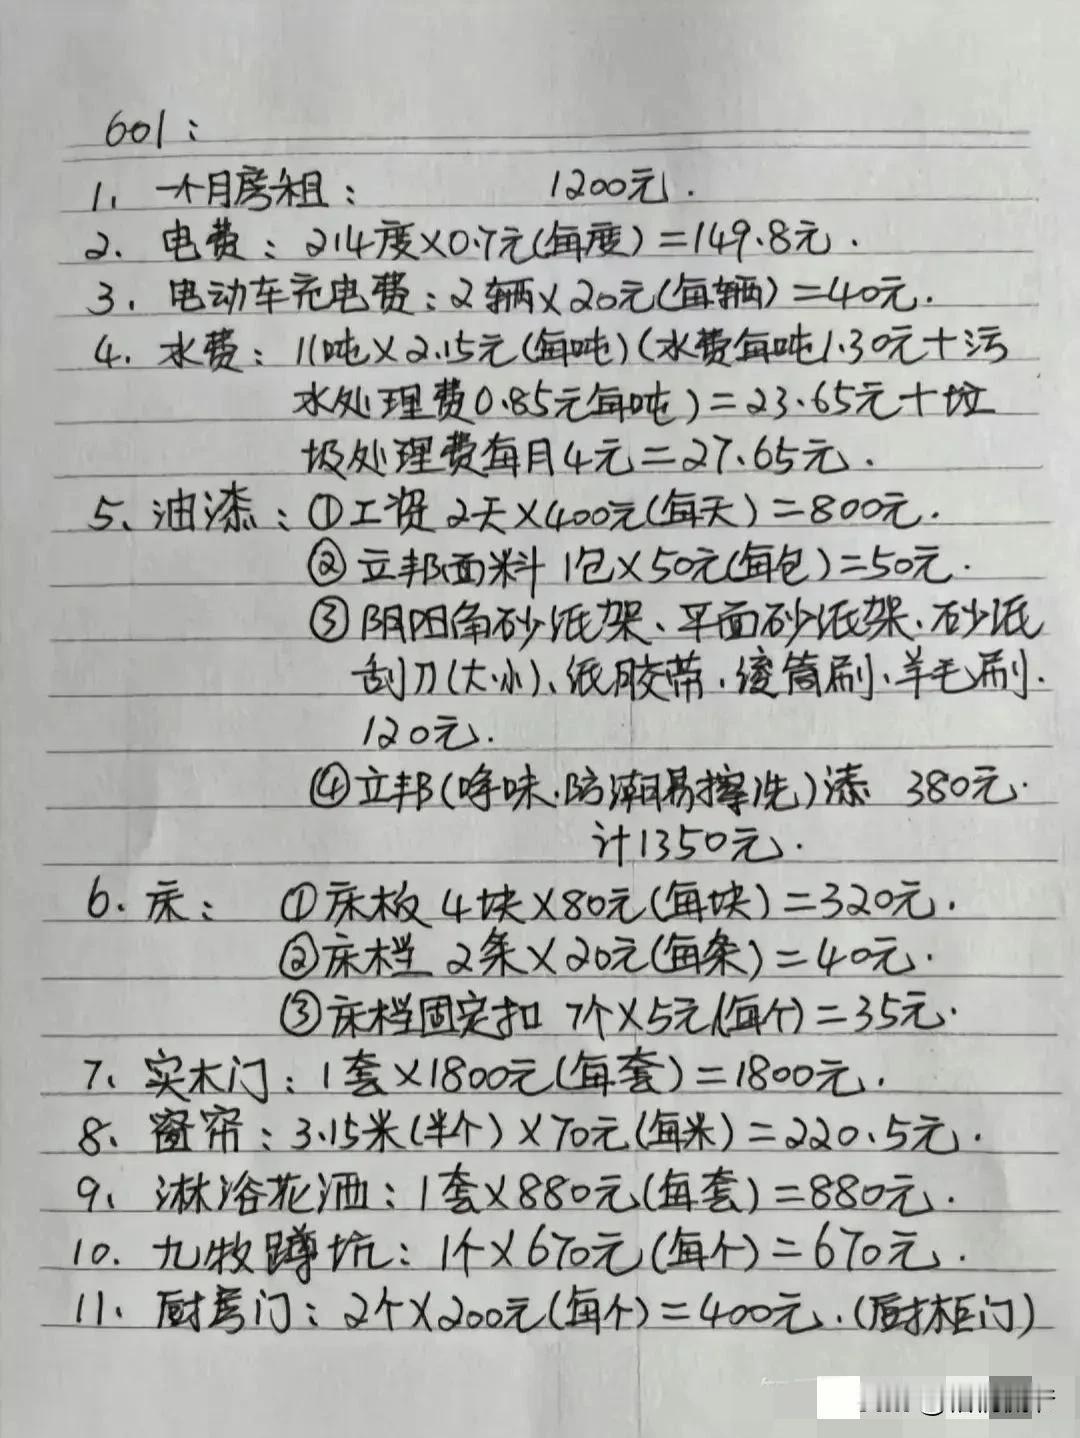 601：
1、一个月房租： 1200元.
2. 电费：214度×0.7元(每度)=149.8元.
3. 电动车充电费：2辆×20元(每辆)=40元.
4. 水费：11吨×2.15元(每吨)(水费每吨1.30元+污
水处理费0.85元每吨)=23.65元+垃
圾处理费每月4元=27.65元.
5、油漆：①工资 2天×400元(每天)=800元.
②立邦面料 1包×50元(每包)=50元.
③阴阳角砂纸架、平面砂纸架、砂纸
刮刀(大、小)、纸胶带、滚筒刷、羊毛刷.
120元.
④立邦(净味.防潮易擦洗)漆 380元.
计1350元.
6. 床：①床板 4块×80元(每块)=320元.
②床档 2条×20元(每条)=40元.
③床档固定扣 7个×5元(每个)=35元.
7、实木门：1套×1800元(每套)=1800元.
8、窗帘：3.15米(半个)×70元(每米)=220.5元.
9、淋浴花洒：1套×880元(每套)=880元.
10. 九牧蹲坑：1个×670元(每个)=670元.
11. 厨房门：2个×200元(每个)=400元.(厨柜门)